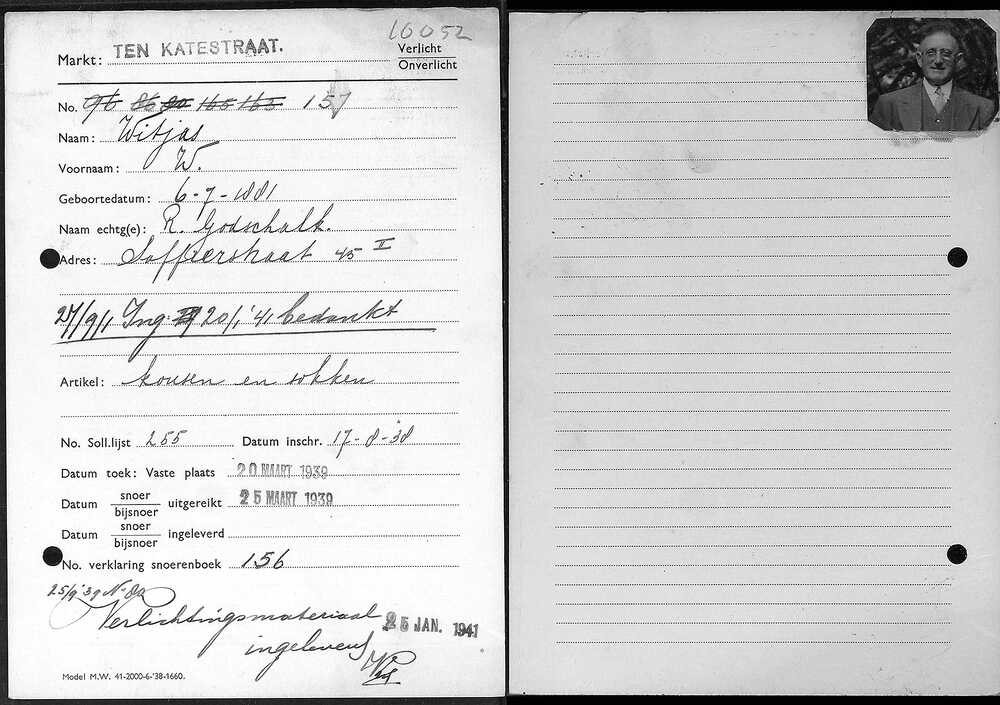 10052
Markt: TEN KATESTRAAT.
Verlicht
Onverlicht
No. 96 86 80 165 163 157
Naam: Witjas
Voornaam: W.
Geboortedatum: 6-7-1881
Naam echtg(e): R. Godschalk.
Adres: Saffierstraat 45 II
Ing. 20/1 '41 bedankt
Artikel: kousen en sokken
No. Soll.lijst 255 Datum inschr. 17-8-38
Datum toek: Vaste plaats 20 MAART 1939
Datum snoer/bijsnoer uitgereikt 25 MAART 1939
Datum snoer/bijsnoer ingeleverd
No. verklaring snoerenboek 156
25/9 '39 N-80
Verlichtingsmateriaal 25 JAN. 1941
ingeleverd
Model M.W. 41-2000-6-'38-1660.